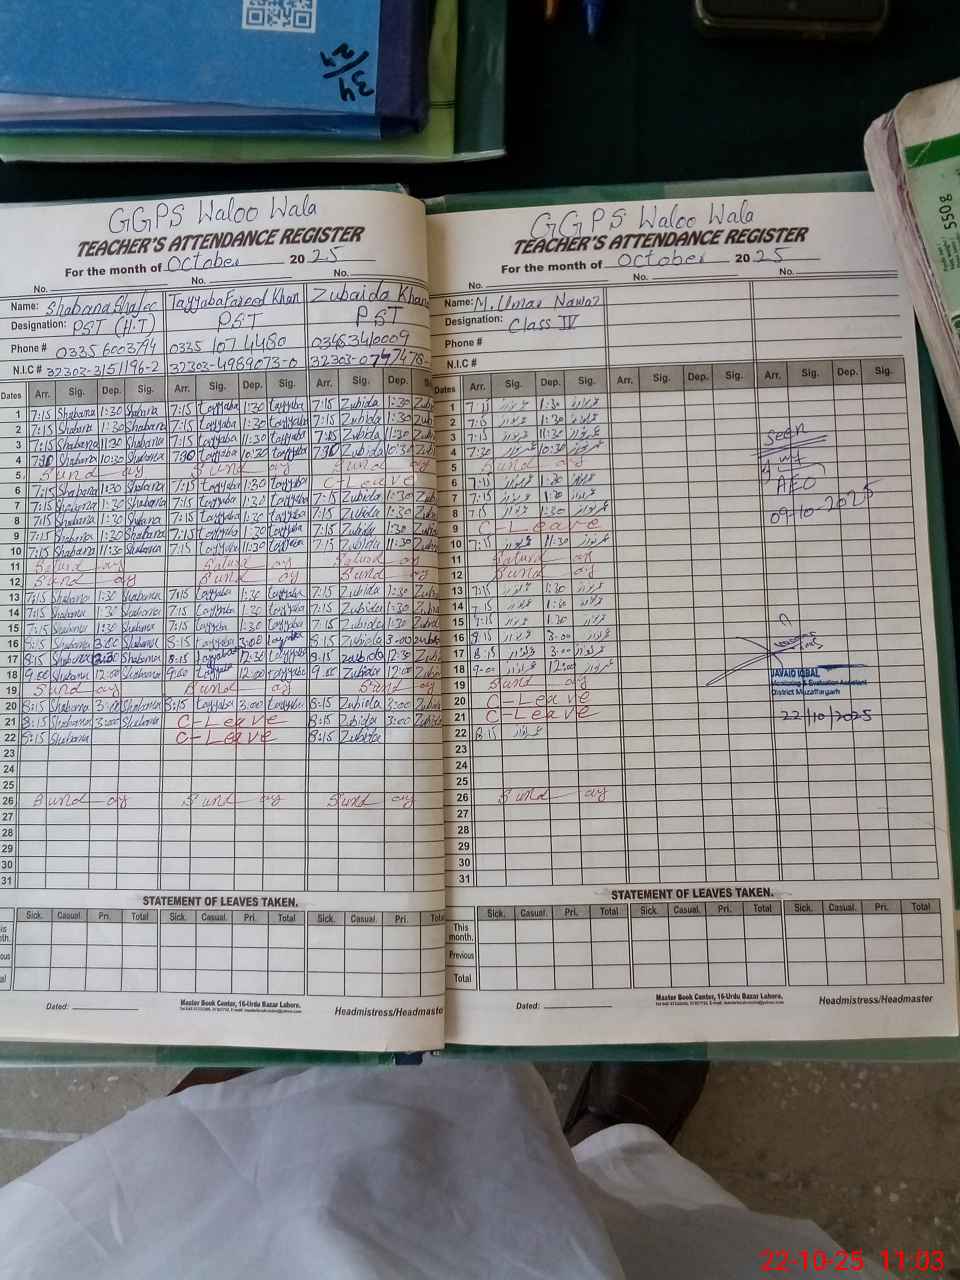 34
27
5508
GGPS Waloo Wala
TEACHER'S ATTENDANCE REGISTER
For the month of October 2025
No. No. No.
Name: Shabana Shafee Tayyaba Fareed Khan Zubaida Khan
Designation: PST (H.T) PST PST
Phone # 0335 6003794 0335 107 4480 03483410009
N.I.C # 32303-3151196-2 32303-4969073-0
Dates Arr. Sig. Dep. Sig. Arr. Sig. Dep. Sig. Arr. Sig. Dep.
1 7:15 Shabana 1:30 Shabana 7:15 tayyaba 1:30 tayyaba 7:15 Zubida 1:30
2 7:15 Shabana 1:30 Shabana 7:15 tayyaba 1:30 tayyaba 7:15 Zubida 1:30
3 7:15 Shabana 11:30 Shabana 7:15 tayyaba 11:30 tayyaba 7:15 Zubida 11:30
4 7:30 Shabana 10:30 Shabana 7:30 tayyaba 10:30 tayyaba 7:30 Zubida 10:30
5 Sund ay Sund ay Sund ay
6 7:15 Shabana 1:30 Shabana 7:15 tayyaba 1:30 tayyaba C-Leave
7 7:15 Shabana 1:30 Shabana 7:15 tayyaba 1:30 tayyaba 7:15 Zubida 1:30
8 7:15 Shabana 1:30 Shabana 7:15 tayyaba 1:30 tayyaba 7:15 Zubida 1:30
9 7:15 Shabana 1:30 Shabana 7:15 tayyaba 1:30 tayyaba 7:15 Zubida 1:30
10 7:15 Shabana 11:30 Shabana 7:15 tayyaba 11:30 tayyaba 7:15 Zubida 11:30
11 Saturd ay Saturd ay Saturd ay
12 Sund ay Sund ay Sund ay
13 7:15 Shabana 1:30 Shabana 7:15 tayyaba 1:30 tayyaba 7:15 Zubida 1:30
14 7:15 Shabana 1:30 Shabana 7:15 tayyaba 1:30 tayyaba 7:15 Zubida 1:30
15 7:15 Shabana 1:30 Shabana 7:15 tayyaba 1:30 tayyaba 7:15 Zubida 1:30
16 8:15 Shabana 3:00 Shabana 8:15 tayyaba 3:00 tayyaba 8:15 Zubida 3:00
17 8:15 Shabana 12:30 Shabana 8:15 tayyaba 12:30 tayyaba 8:15 zubida 12:30
18 9:00 Shabana 12:00 Shabana 9:00 tayyaba 12:00 tayyaba 9:00 Zubida 12:00
19 Sund ay Sund ay Sund ay
20 8:15 Shabana 3:00 Shabana 8:15 tayyaba 3:00 tayyaba 8:15 Zubida 3:00
21 8:15 Shabana 3:00 Shabana C-Leave 8:15 Zubida 3:00
22 8:15 Shabana C-Leave 8:15 Zubida
23
24
25
26 Sund ay Sund ay Sund ay
27
28
29
30
31
STATEMENT OF LEAVES TAKEN.
Sick. Casual. Pri. Total Sick. Casual. Pri. Total Sick. Casual. Pri.
Dated:
Master Book Center, 16-Urdu Bazar Lahore.
Headmistress/Headmaster
GGPS Waloo Wala
TEACHER'S ATTENDANCE REGISTER
For the month of October 2025
No. No. No.
Name: M. Umar Nawaz
Designation: Class IV
Phone #
N.I.C #
Dates Arr. Sig. Dep. Sig. Arr. Sig. Dep. Sig. Arr. Sig. Dep. Sig.
1 7:15 1:30
2 7:15 1:30
3 7:15 11:30
4 7:30 10:30
5 Sund ay
6 7:15 1:30
7 7:15 1:30
8 7:15 1:30
9 C-Leave
10 7:15 11:30
11 Saturd ay
12 Sund ay
13 7:15 1:30
14 7:15 1:30
15 7:15 1:30
16 8:15 3:00
17 8:15 3:00
18 9:00 12:00
19 Sund ay
20 C-Leave
21 C-Leave
22 8:15
23
24
25
26 Sund ay
27
28
29
30
31
Seen
AEO
09-10-2025
JAVAID IQBAL
Monitoring & Evaluation Assistant
District Muzaffargarh
22/10/2025
STATEMENT OF LEAVES TAKEN.
Sick. Casual. Pri. Total Sick. Casual. Pri. Total Sick. Casual. Pri. Total
This month.
Previous
Total
Dated:
Master Book Center, 16-Urdu Bazar Lahore.
Headmistress/Headmaster
22-10-25 11:03